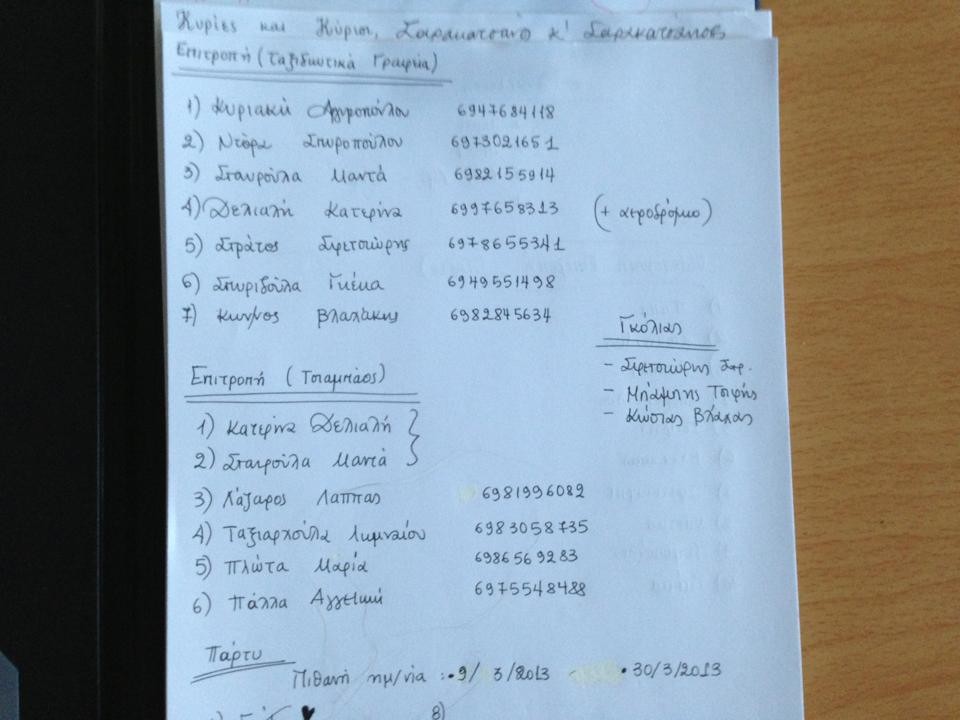 Κυρίες και Κύριοι, Σαρακατσάνοι κ' Σαρακατσάνες
Επιτροπή (Ταξιδιωτικά Γραφεία)
1) Κυριακή Αργυροπούλου 6947684118
2) Ντόρα Σπυροπούλου 6973021651
3) Σταυρούλα Μαντά 6982155914
4) Δελιαλή Κατερίνα 6997658313 (+ αεροδρόμιο)
5) Στράτος 6978655341
6) Σπυριδούλα Γκέκα 6949551498
7) Κων/νος Βλαχάκης 6982845634
Γκόλιας
Επιτροπή (Τσιαμπάος)
- Μπάμπης Τσιρής
1) Κατερίνα Δελιαλή
- Κώστας Βλάχας
2) Σταυρούλα Μαντά
3) Λάζαρος Λάππας 6981996082
4) Ταξιαρχούλα Λιμναίου 6983058735
5) Πλώτα Μαρία 6986569283
6) Πάλλα Αγγελική 6975548488
Πάρτυ
Πιθανή ημ/νία : • 9/ 3/2013 • 30/3/2013
8)